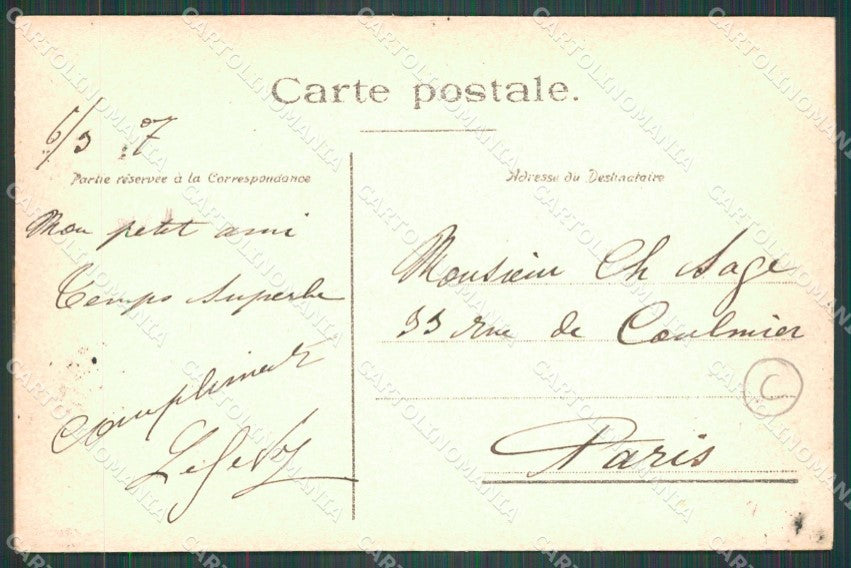 Carte postale.
6/3 07
Partie réservée à la Correspondance
Adresse du Destinataire
Mon petit ami
Temps superbe
compliments
Monsieur Ch Sage
33 rue de Coulmier
Paris
C
CARTOLINOMANIA